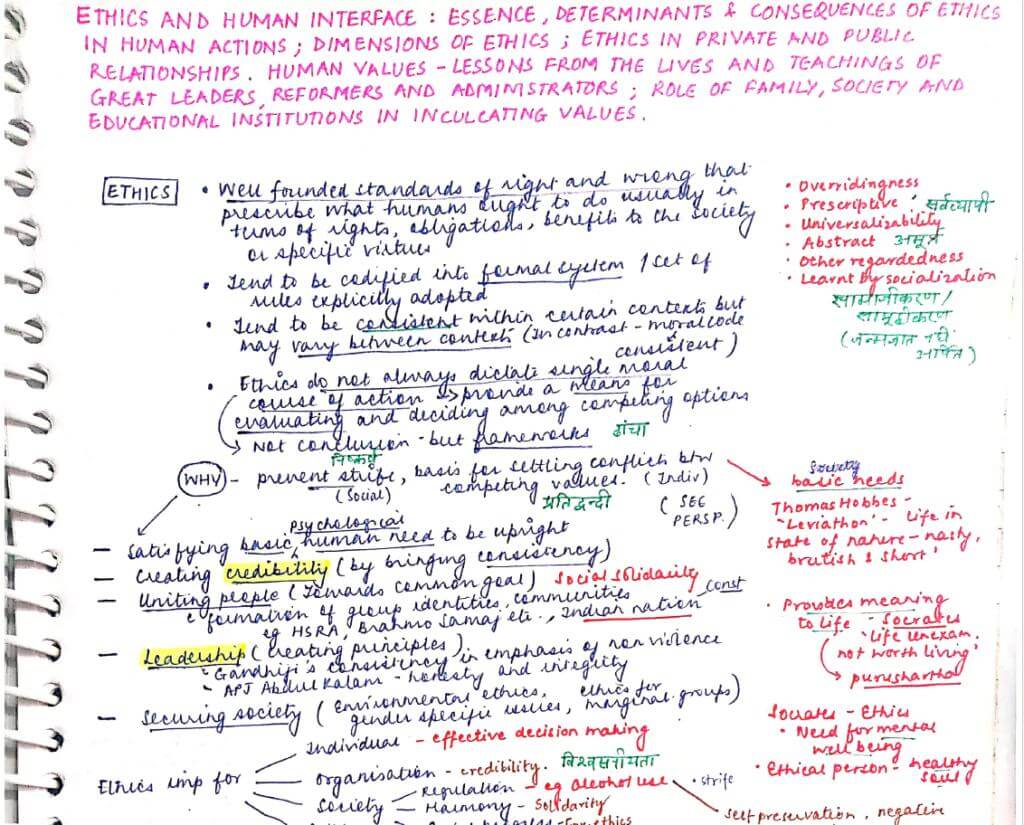 ETHICS AND HUMAN INTERFACE : ESSENCE, DETERMINANTS & CONSEQUENCES OF ETHICS
IN HUMAN ACTIONS ; DIMENSIONS OF ETHICS ; ETHICS IN PRIVATE AND PUBLIC
RELATIONSHIPS. HUMAN VALUES - LESSONS FROM THE LIVES AND TEACHINGS OF
GREAT LEADERS, REFORMERS AND ADMINISTRATORS ; ROLE OF FAMILY, SOCIETY AND
EDUCATIONAL INSTITUTIONS IN INCULCATING VALUES.
ETHICS
• Well founded standards of right and wrong that
prescribe what humans ought to do usually in
terms of rights, obligations, benefits to the society
or specific virtues
• Tend to be codified into formal system / set of
rules explicitly adopted
• Tend to be consistent within certain contexts but
may vary between contexts (In contrast - moral code
consistent)
• Ethics do not always dictate single moral
course of action → provide a means for
evaluating and deciding among competing options
→ Not conclusion - but frameworks ढांचा
निष्कर्ष
• Overridingness
• Prescriptive सर्वव्यापी
• Universalizability
• Abstract अमूर्त
• Other regardedness
• Learnt by socialization
सामाजीकरण /
सामूहीकरण
(जन्मजात नहीं
अर्जित)
WHY - prevent strife, basis for settling conflicts btw
(Social) competing values. (Indiv)
प्रतिद्वन्दी (SEE
PERSP.)
Society
basic needs
Thomas Hobbes -
'Leviathon' - Life in
state of nature - nasty,
brutish & short'
psychological
- Satisfying basic human need to be upright
- Creating credibility (by bringing consistency)
- Uniting people (Towards common goal) Social solidarity
formation of group identities, communities const
eg HSRA, Brahmo Samaj etc., Indian nation
- Leadership (Creating principles)
- Gandhiji's consistency in emphasis of non violence
- APJ Abdul Kalam - honesty and integrity
- Securing society (Environmental ethics, ethics for
gender specific issues, marginal groups)
• Provides meaning
to life - Socrates
'Life unexam.
not worth living'
→ purushartha
Socrates - Ethics
• Need for mental
well being
• Ethical person - healthy
soul
Ethics imp for
Individual - effective decision making
Organisation - credibility. विश्वसनीयता
Society
Regulation - eg alcohol use • strife
Harmony - Solidarity
self preservation, negative